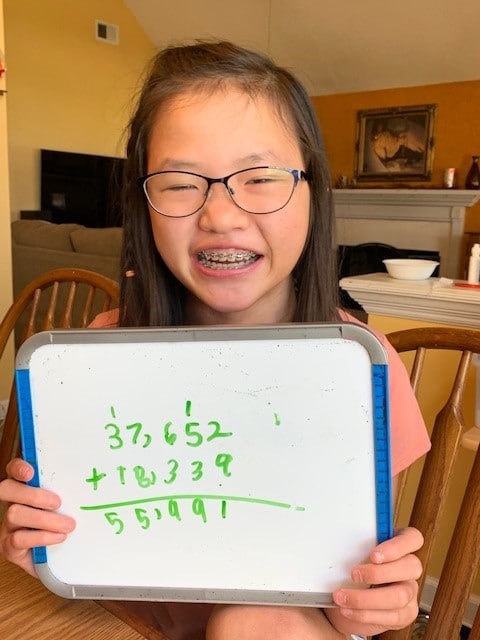 1 1
37,652
+ 18,339
55,991